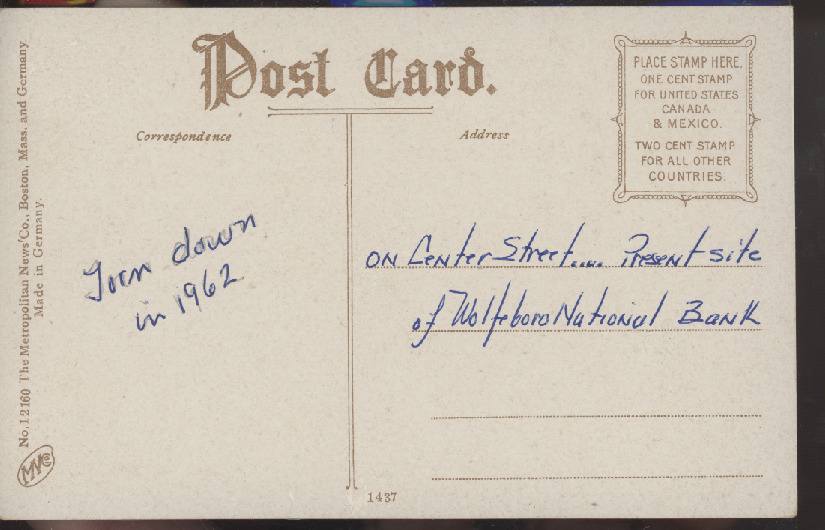 Post Card.
Correspondence
Address
PLACE STAMP HERE.
ONE CENT STAMP
FOR UNITED STATES
CANADA
& MEXICO.
TWO CENT STAMP
FOR ALL OTHER
COUNTRIES.
Torn down
in 1962
on Center Street..... Present site
of Wolfeboro National Bank
No. 12160 The Metropolitan News Co., Boston, Mass. and Germany
Made in Germany.
MNCo
1437